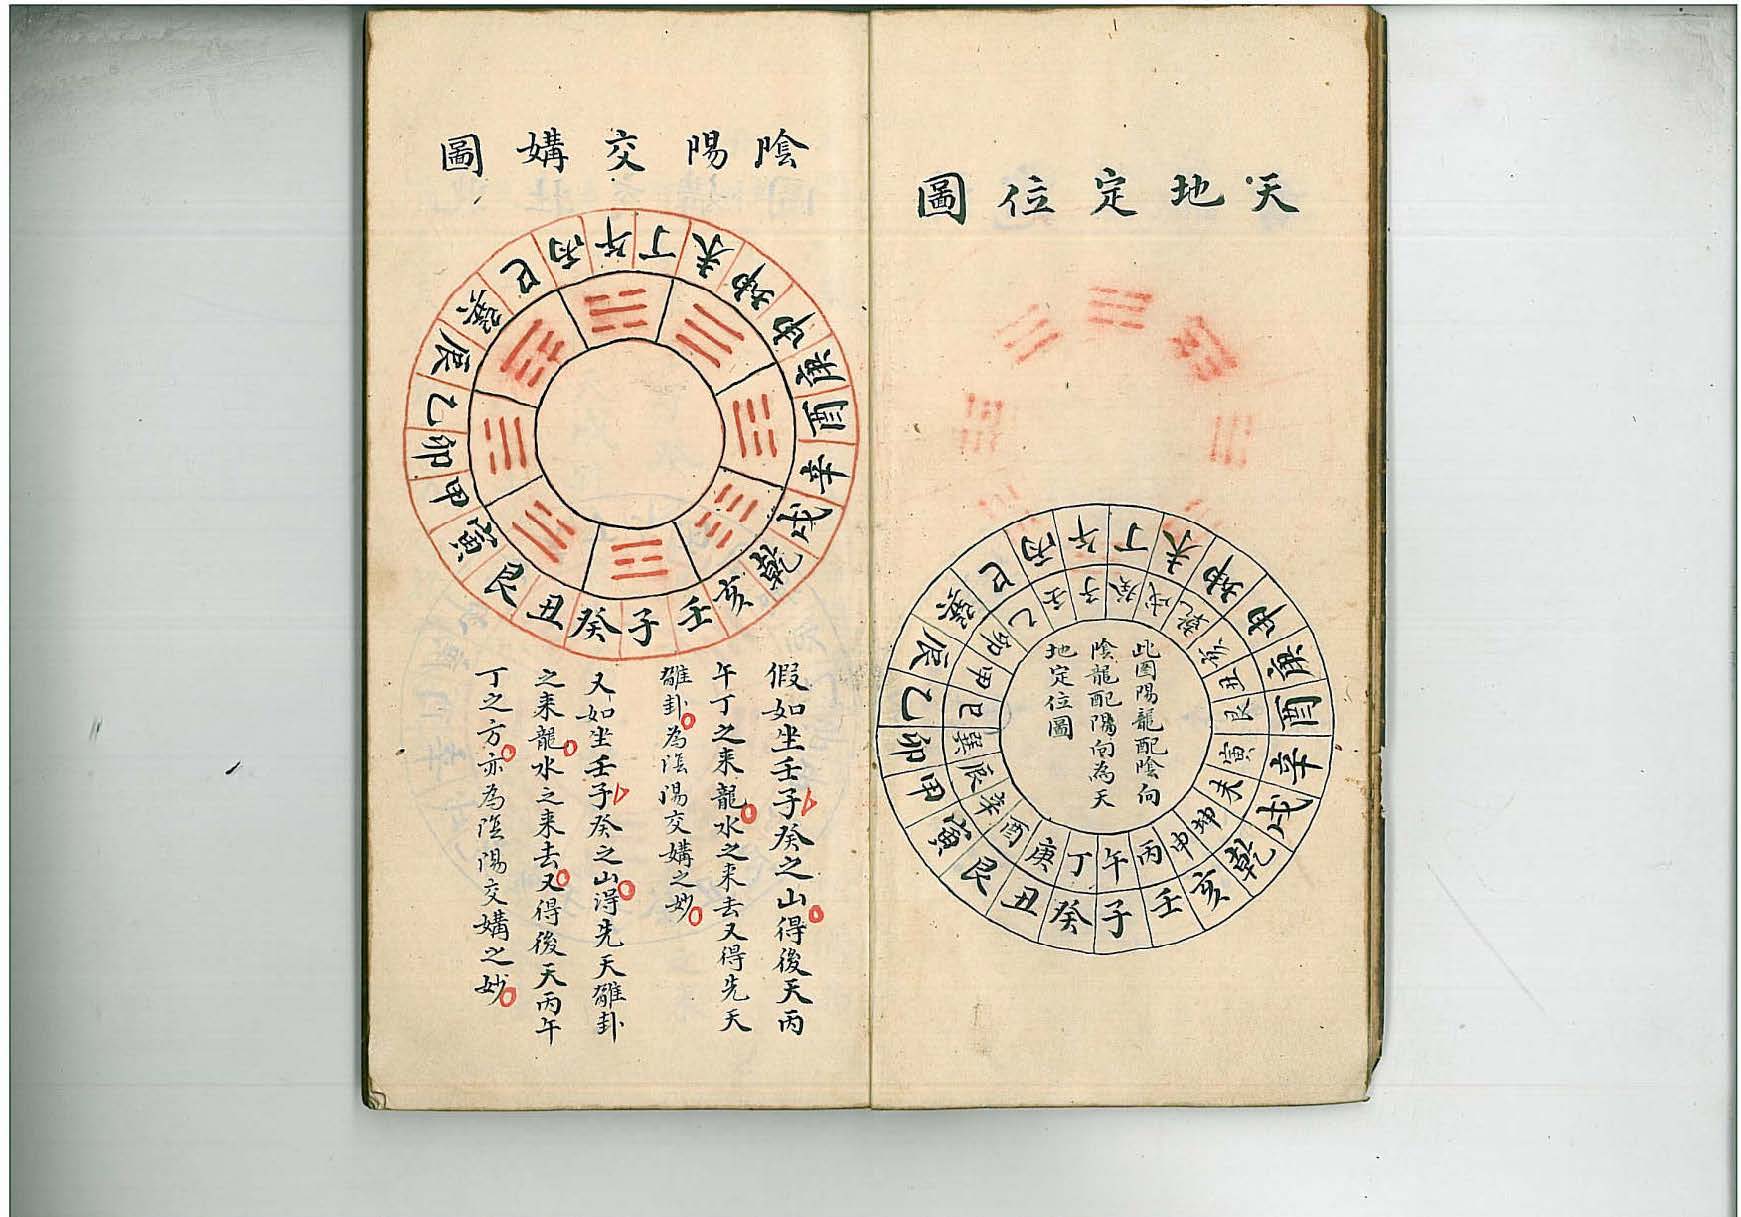 天地定位圖
午丁未坤申庚酉辛戌乾亥壬子癸丑艮寅甲卯乙辰巽巳丙
子癸戌乾亥丑艮寅未坤申丙午丁庚酉辛辰巽巳甲卯乙壬
此图陽龍配陰向
陰龍配陽向為天
地定位圖
陰陽交媾圖
午丁未坤申庚酉辛戌乾亥壬子癸丑艮寅甲卯乙辰巽巳丙
假如坐壬子癸之山。得後天丙
午丁之来龍。水之来去又得先天
離卦。為陰陽交媾之妙。
又如坐壬子癸之山。得先天離卦
之来龍。水之来去。又得後天丙午
丁之方。亦為陰陽交媾之妙。